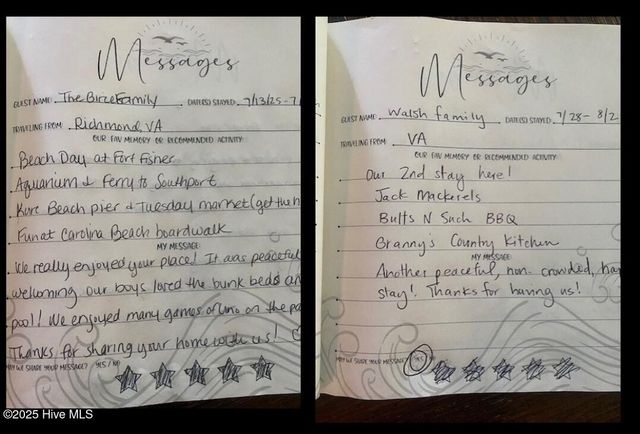 Messages
GUEST NAME: The Birze Family DATE(S) STAYED: 7/13/25-7
TRAVELING FROM: Richmond, VA
OUR FAV MEMORY OR RECOMMENDED ACTIVITY:
Beach Day at Fort Fisher
Aquarium & Ferry to Southport
Kure Beach pier & Tuesday market (get the h
Fun at Carolina Beach boardwalk
MY MESSAGE:
We really enjoyed your place! It was peaceful
welcoming our boys loved the bunk beds an
pool! We enjoyed many games of uno on the pa
Thanks for sharing your home with us!
MAY WE SHARE YOUR MESSAGE? YES / NO
Messages
GUEST NAME: Walsh family DATE(S) STAYED: 7/28 - 8/2
TRAVELING FROM: VA
OUR FAV MEMORY OR RECOMMENDED ACTIVITY:
Our 2nd stay here!
Jack Mackerels
Butts N Such BBQ
Granny's Country Kitchen
MY MESSAGE:
Another peaceful, non-crowded,
stay! Thanks for having us!
MAY WE SHARE YOUR MESSAGE? YES
©2025 Hive MLS